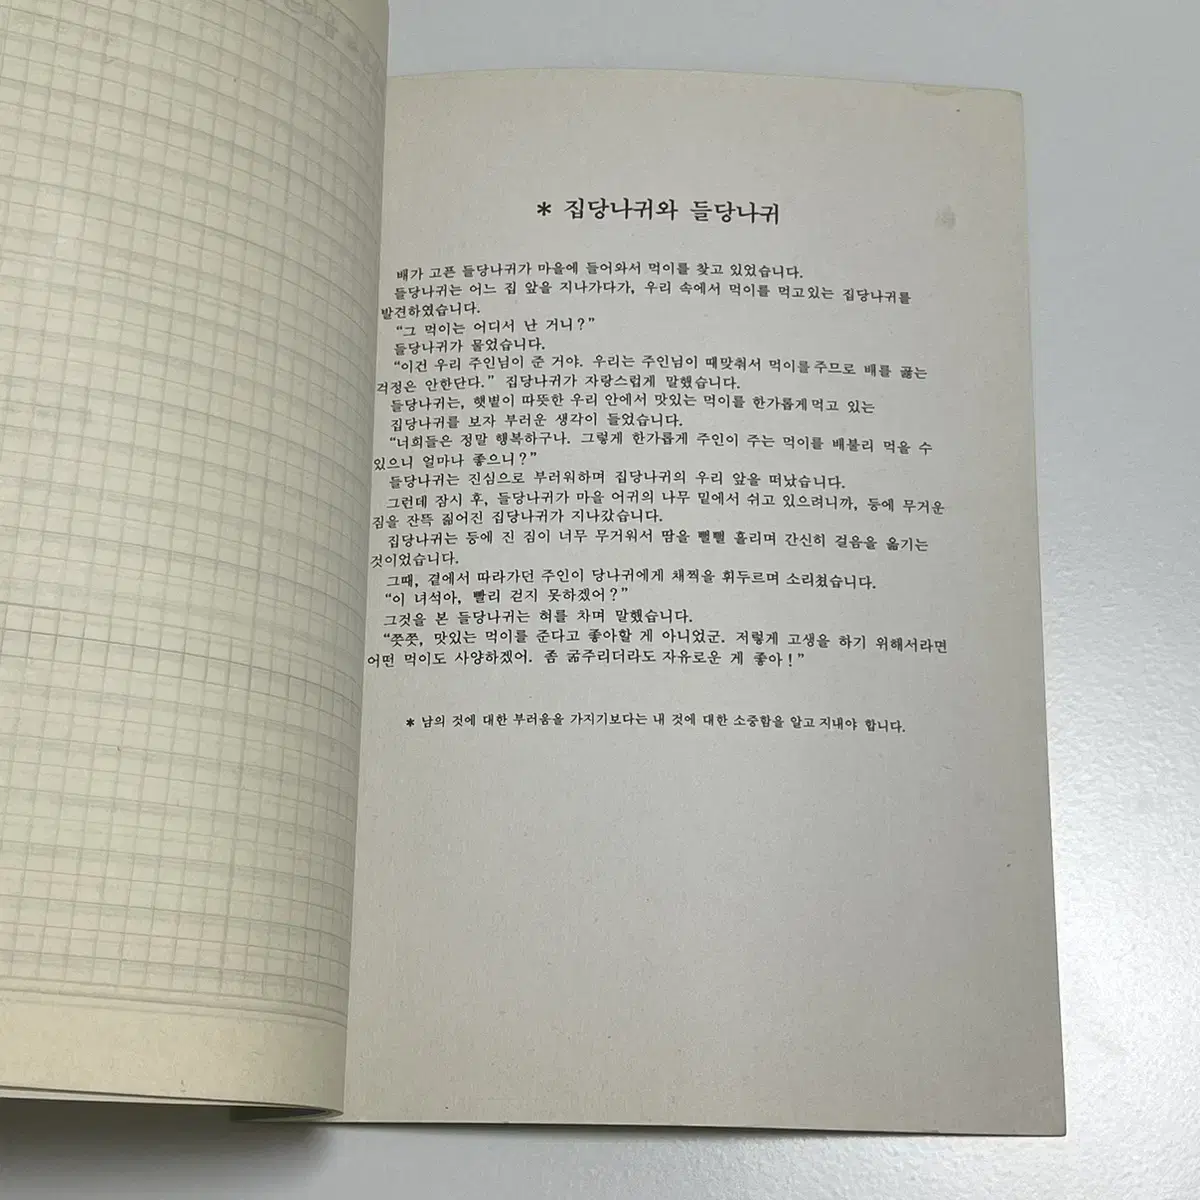 * 집당나귀와 들당나귀
배가 고픈 들당나귀가 마을에 들어와서 먹이를 찾고 있었습니다.
들당나귀는 어느 집 앞을 지나가다가, 우리 속에서 먹이를 먹고있는 집당나귀를
발견하였습니다.
“그 먹이는 어디서 난 거니?”
들당나귀가 물었습니다.
“이건 우리 주인님이 준 거야. 우리는 주인님이 때맞춰서 먹이를 주므로 배를 곯는
걱정은 안한단다.” 집당나귀가 자랑스럽게 말했습니다.
들당나귀는, 햇볕이 따뜻한 우리 안에서 맛있는 먹이를 한가롭게 먹고 있는
집당나귀를 보자 부러운 생각이 들었습니다.
“너희들은 정말 행복하구나. 그렇게 한가롭게 주인이 주는 먹이를 배불리 먹을 수
있으니 얼마나 좋으니?”
들당나귀는 진심으로 부러워하며 집당나귀의 우리 앞을 떠났습니다.
그런데 잠시 후, 들당나귀가 마을 어귀의 나무 밑에서 쉬고 있으려니까, 등에 무거운
짐을 잔뜩 짊어진 집당나귀가 지나갔습니다.
집당나귀는 등에 진 짐이 너무 무거워서 땀을 뻘뻘 흘리며 간신히 걸음을 옮기는
것이었습니다.
그때, 곁에서 따라가던 주인이 당나귀에게 채찍을 휘두르며 소리쳤습니다.
“이 녀석아, 빨리 걷지 못하겠어?”
그것을 본 들당나귀는 혀를 차며 말했습니다.
“쯧쯧, 맛있는 먹이를 준다고 좋아할 게 아니었군. 저렇게 고생을 하기 위해서라면
어떤 먹이도 사양하겠어. 좀 굶주리더라도 자유로운 게 좋아!”
* 남의 것에 대한 부러움을 가지기보다는 내 것에 대한 소중함을 알고 지내야 합니다.